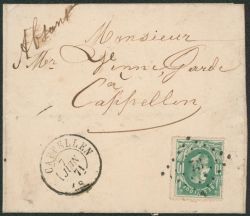 Absent
Monsieur
Venne, Garde
a
Cappellen
CAPELLEN
7
JUIN
71